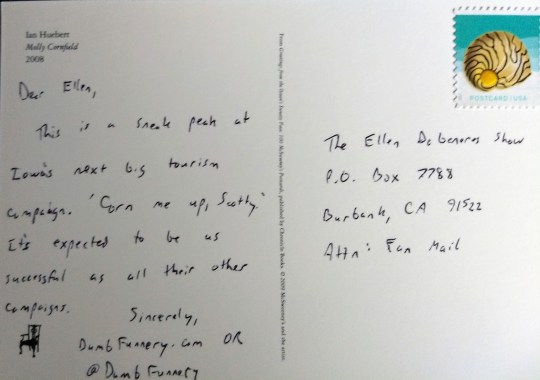 Ian Huebert
Molly Cornfield
2008
Dear Ellen,
This is a sneak peak at
Iowa's next big tourism
campaign. "Corn me up, Scotty."
It's expected to be us
successful as all their other
campaigns.
Sincerely,
DumbFunnery.com OR
@DumbFunnery
published by Chronicle Books. © 2009 McSweeney's and the artist.
POSTCARD USA
The Ellen Degeneres Show
P.O. Box 7788
Burbank, CA 91522
Attn: Fan Mail